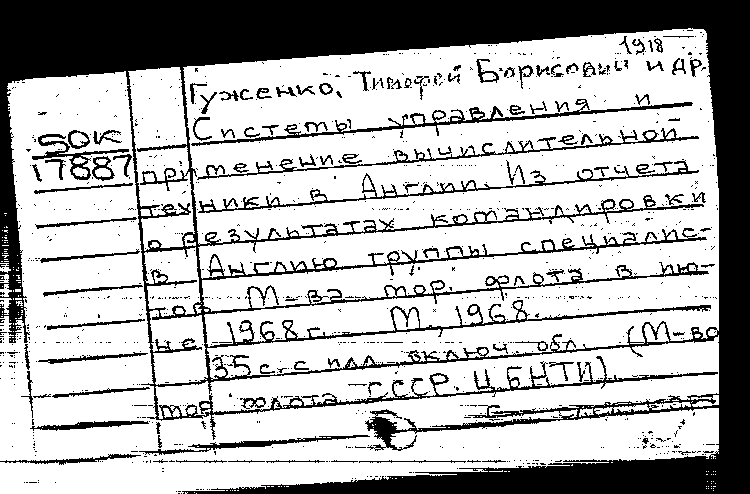 1918
Гуженко, Тимофей Борисович и др.
Системы управления и
50к
17887
применение вычислительной
техники в Англии. Из отчета
о результатах командировки
в Англию группы специалис-
тов М-ва мор. флота в ию-
не 1968 г. М., 1968.
35 с. с илл. включ. обл. (М-во
мор флота СССР. ЦБНТИ).